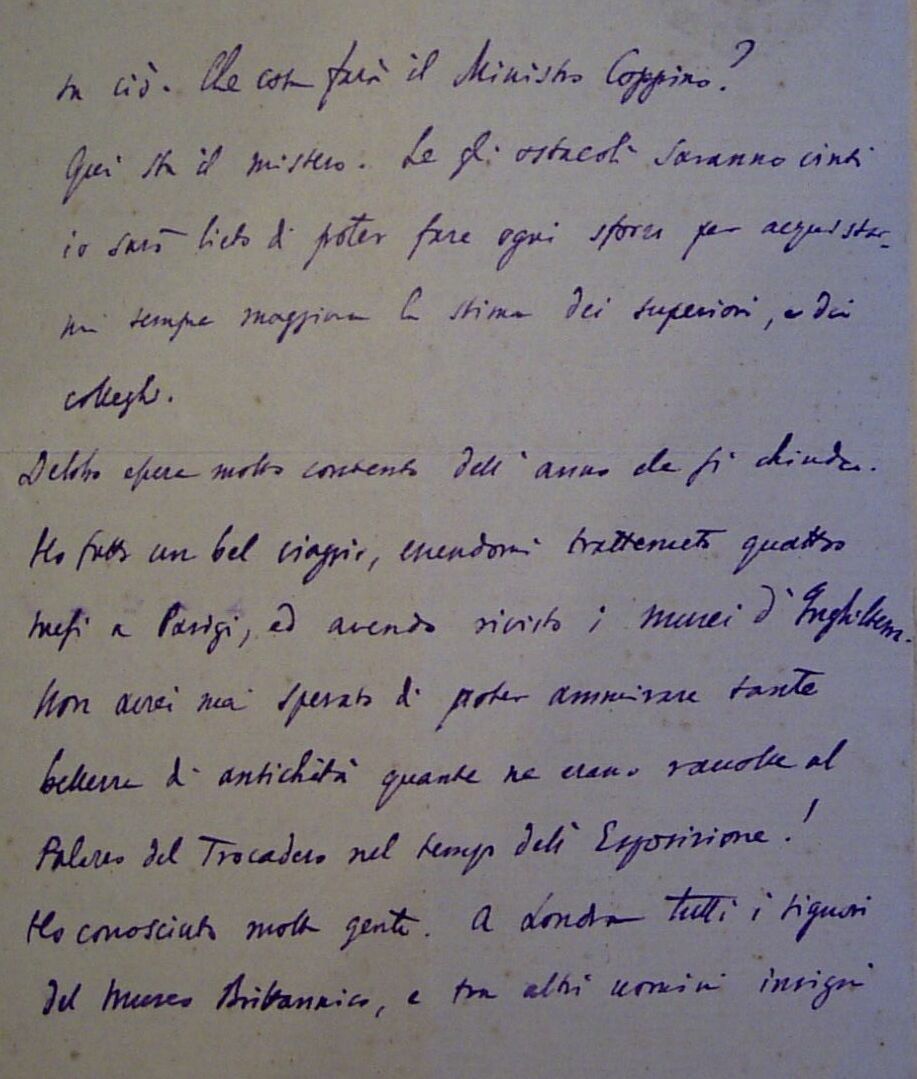 su ciò. Che cosa farà il Ministro Coppino?
Qui sta il mistero. Se gli ostacoli saranno vinti
io sarò lieto di poter fare ogni sforzo per acquistar-
mi sempre maggiore la stima dei superiori, e dei
colleghi.
Debbo essere molto contento dell'anno che si chiude.
Ho fatto un bel viaggio, essendomi trattenuto quattro
mesi a Parigi, ed avendo rivisto i musei d'Inghilterra.
Non avrei mai sperato di poter ammirare tante
bellezze di antichità quante ne erano raccolte al
Palazzo del Trocadero nel tempo dell'Esposizione!
Ho conosciuto molta gente. A Londra tutti i signori
del Museo Britannico, e tra altri uomini insigni